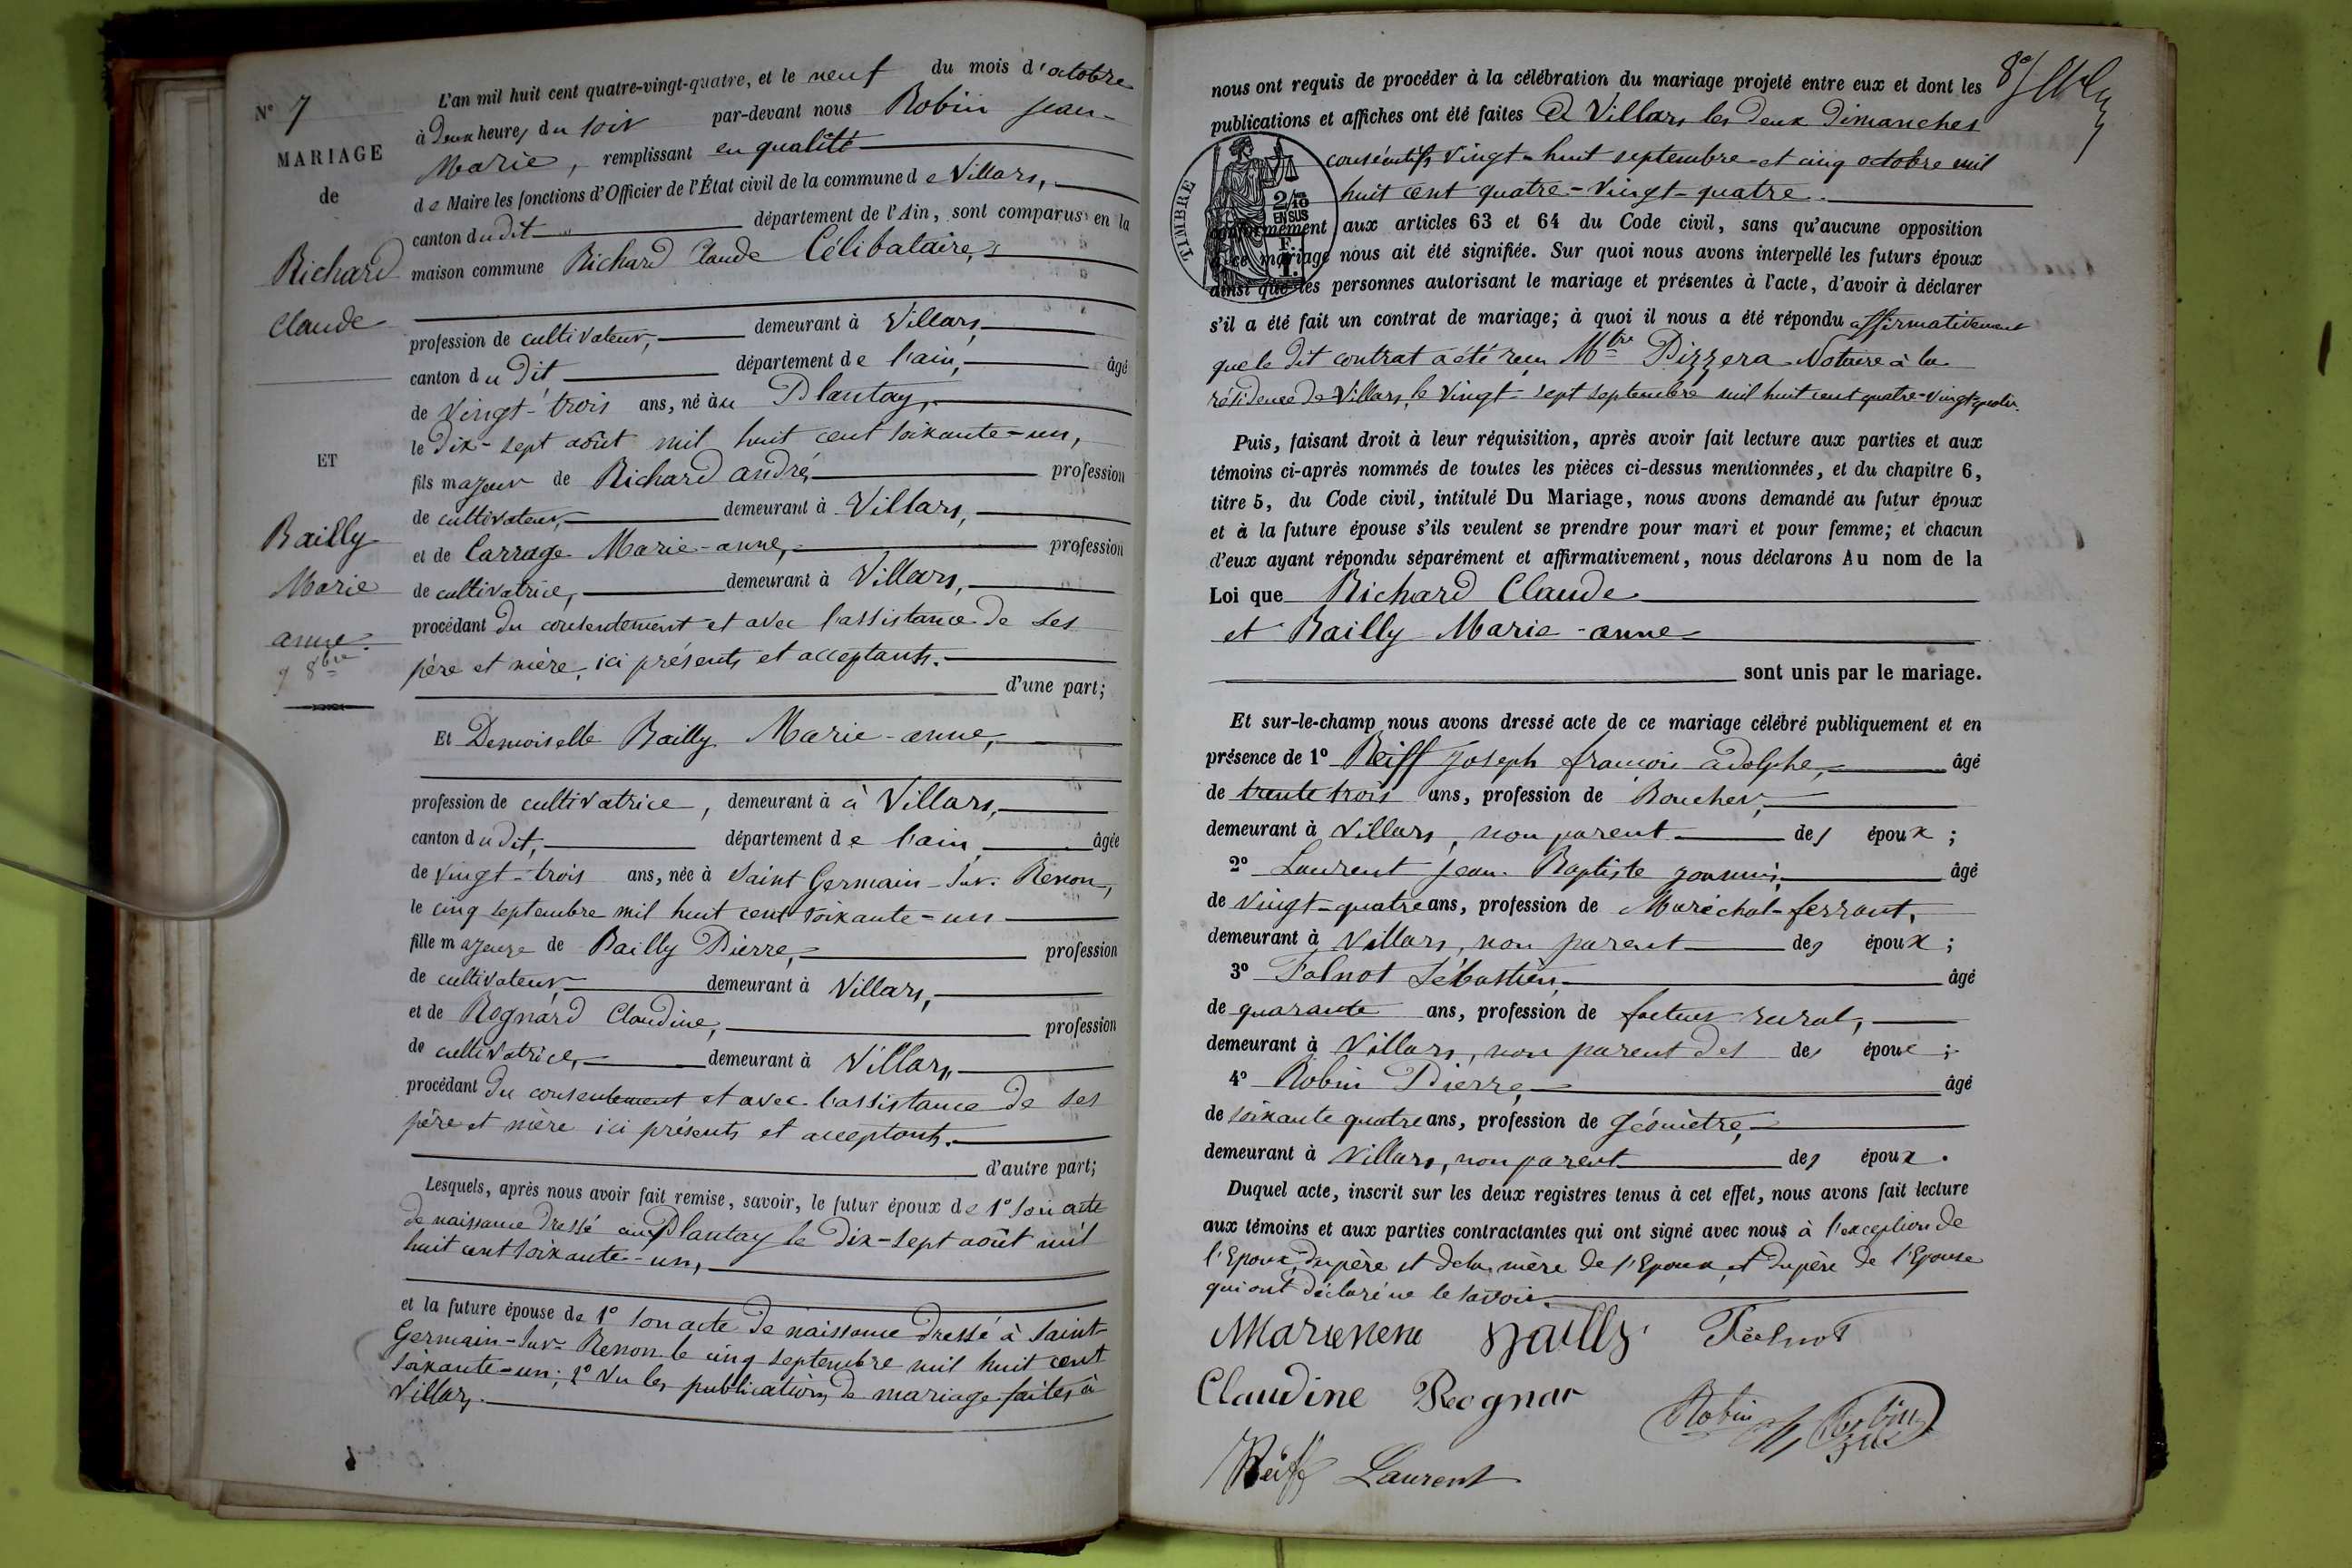 N° 7
MARIAGE
de
Richard
Claude
ET
Bailly
Marie
anne.
9 8bre
L'an mil huit cent quatre-vingt-quatre, et le neuf du mois d'octobre
à Deux heures du soir par-devant nous Robin Jean-
Marie, remplissant en qualité
de Maire les fonctions d'Officier de l'État civil de la commune de Villars,
canton du dit département de l'Ain, sont comparus en la
maison commune Richard Claude Célibataire,
profession de cultivateur, demeurant à Villars,
canton du Dit département de l'ain, âgé
de Vingt-trois ans, né au Plantay,
le Dix-sept août mil huit cent soixante-un,
fils majeur de Richard andré, profession
de cultivateur, demeurant à Villars,
et de Carrage Marie-anne, profession
de cultivatrice, demeurant à Villars,
procédant du consentement et avec l'assistance de ses
père et mère, ici présents et acceptants.
d'une part;
Et Demoiselle Bailly Marie-anne,
profession de cultivatrice, demeurant à à Villars,
canton du dit, département de l'ain, âgée
de vingt-trois ans, née à Saint Germain-Sur-Renon,
le cinq septembre mil huit cent soixante-un
fille majeure de Bailly Pierre, profession
de cultivateur demeurant à Villars,
et de Rognard Claudine, profession
de cultivatrice, demeurant à Villars,
procédant du consentement et avec l'assistance de ses
père et mère ici présents et acceptants.
d'autre part;
Lesquels, après nous avoir fait remise, savoir, le futur époux de 1° son acte
de naissance dressé au Plantay le Dix-sept août mil
huit cent soixante-un,
et la future épouse de 1° son acte de naissance dressé à Saint-
Germain-Sur-Renon le cinq septembre mil huit cent
soixante-un; 2° Vu les publications de mariage faites à
Villars.
nous ont requis de procéder à la célébration du mariage projeté entre eux et dont les
publications et affiches ont été faites à Villars les deux Dimanches
consécutifs Vingt-huit septembre et cinq octobre mil
huit cent quatre-Vingt-quatre.
TIMBRE
2/10
EN SUS
conformément aux articles 63 et 64 du Code civil, sans qu'aucune opposition
à ce mariage nous ait été signifiée. Sur quoi nous avons interpellé les futurs époux
ainsi que les personnes autorisant le mariage et présentes à l'acte, d'avoir à déclarer
s'il a été fait un contrat de mariage; à quoi il nous a été répondu affirmativement
que le dit contrat a été reçu Mtre Pizzera Notaire à la
résidence de Villars, le Vingt-sept septembre mil huit cent quatre-vingt-quatre.
Puis, faisant droit à leur réquisition, après avoir fait lecture aux parties et aux
témoins ci-après nommés de toutes les pièces ci-dessus mentionnées, et du chapitre 6,
titre 5, du Code civil, intitulé Du Mariage, nous avons demandé au futur époux
et à la future épouse s'ils veulent se prendre pour mari et pour femme; et chacun
d'eux ayant répondu séparément et affirmativement, nous déclarons Au nom de la
Loi que Richard Claude
et Bailly Marie-anne
sont unis par le mariage.
Et sur-le-champ nous avons dressé acte de ce mariage célébré publiquement et en
présence de 1° Reiff Joseph françois adolphe, âgé
de trente trois ans, profession de Boucher,
demeurant à Villars, non parent des époux;
2° Laurent Jean-Baptiste âgé
de vingt-quatre ans, profession de Maréchal-ferrant,
demeurant à Villars, non parent des époux;
3° Falnot Sébastien, âgé
de quarante ans, profession de facteur rural,
demeurant à Villars, non parent des des époux;
4° Robin Pierre, âgé
de soixante quatre ans, profession de Géomètre,
demeurant à Villars, non parent des époux.
Duquel acte, inscrit sur les deux registres tenus à cet effet, nous avons fait lecture
aux témoins et aux parties contractantes qui ont signé avec nous à l'exception de
l'Epoux, du père et de la mère de l'Epoux, et du père de l'Epouse
qui ont déclaré ne le savoir.
Bailly Falnot
Claudine Rognar
Robin Robin
Reiff Laurent